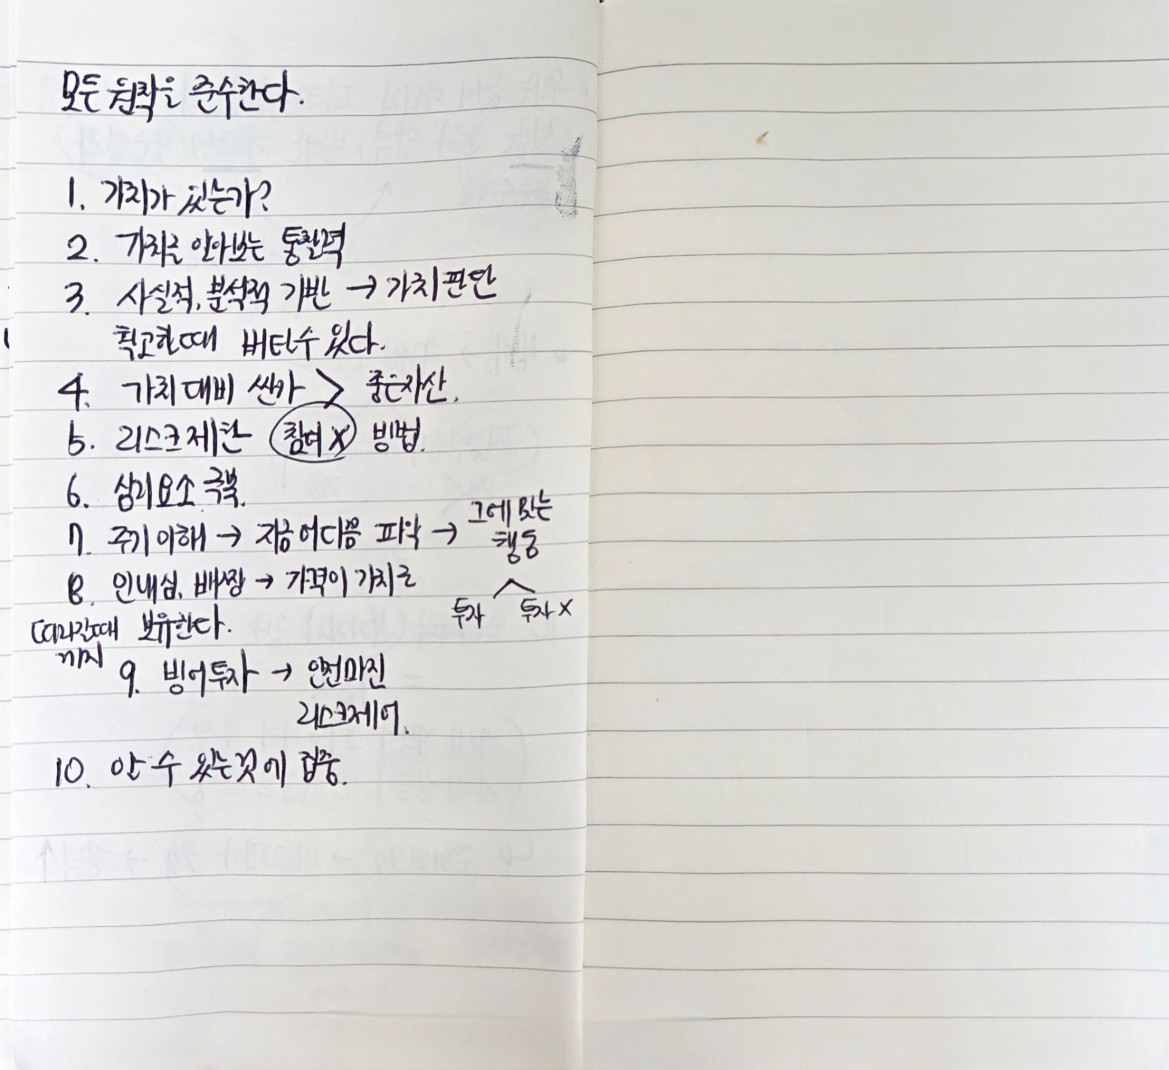 모든 원칙을 준수한다.
1. 가치가 있는가?
2. 가치를 알아보는 통찰력
3. 사실적, 분석적 기반 → 가치판단
확고할때 버틸수 있다.
4. 가치 대비 싼가 > 좋은자산.
5. 리스크제한 X 방법.
6. 심리요소 극복.
7. 주기 이해 → 지금 어디쯤 파악 → 그에 맞는
행동
투자 투자 X
8. 인내심, 배짱 → 가격이 가치로
따라갈때 보유한다.
까지
9. 방어투자 → 안전마진
리스크제어.
10. 알 수 있는것에 집중.